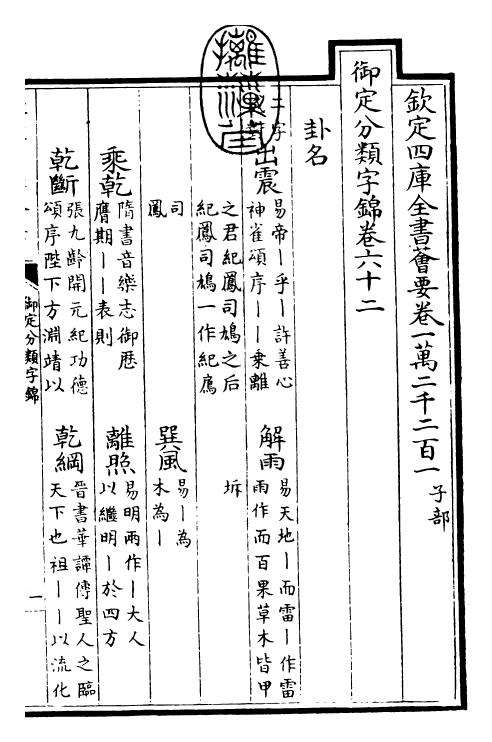 欽定四庫全書薈要卷一萬二千二百一 子部
御定分類字錦卷六十二
卦名
二字對
出震 易帝丨乎丨許善心
神雀頌序丨丨乗離
之君紀鳳司鳩之后
紀鳳司鳩一作紀鳸
司
鳳
解雨 易天地丨而雷丨作雷
雨作而百果草木皆甲
坼
巽風 易丨為
木為丨
乘乾 隋書音樂志御歴
膺期丨丨表則
離照 易明兩作丨大人
以繼明丨於四方
乾斷 張九齡開元紀功德
頌序陛下方淵靖以
乾綱 晉書華譚傳聖人之臨
天下也祖丨丨以流化
御定分類字錦
一